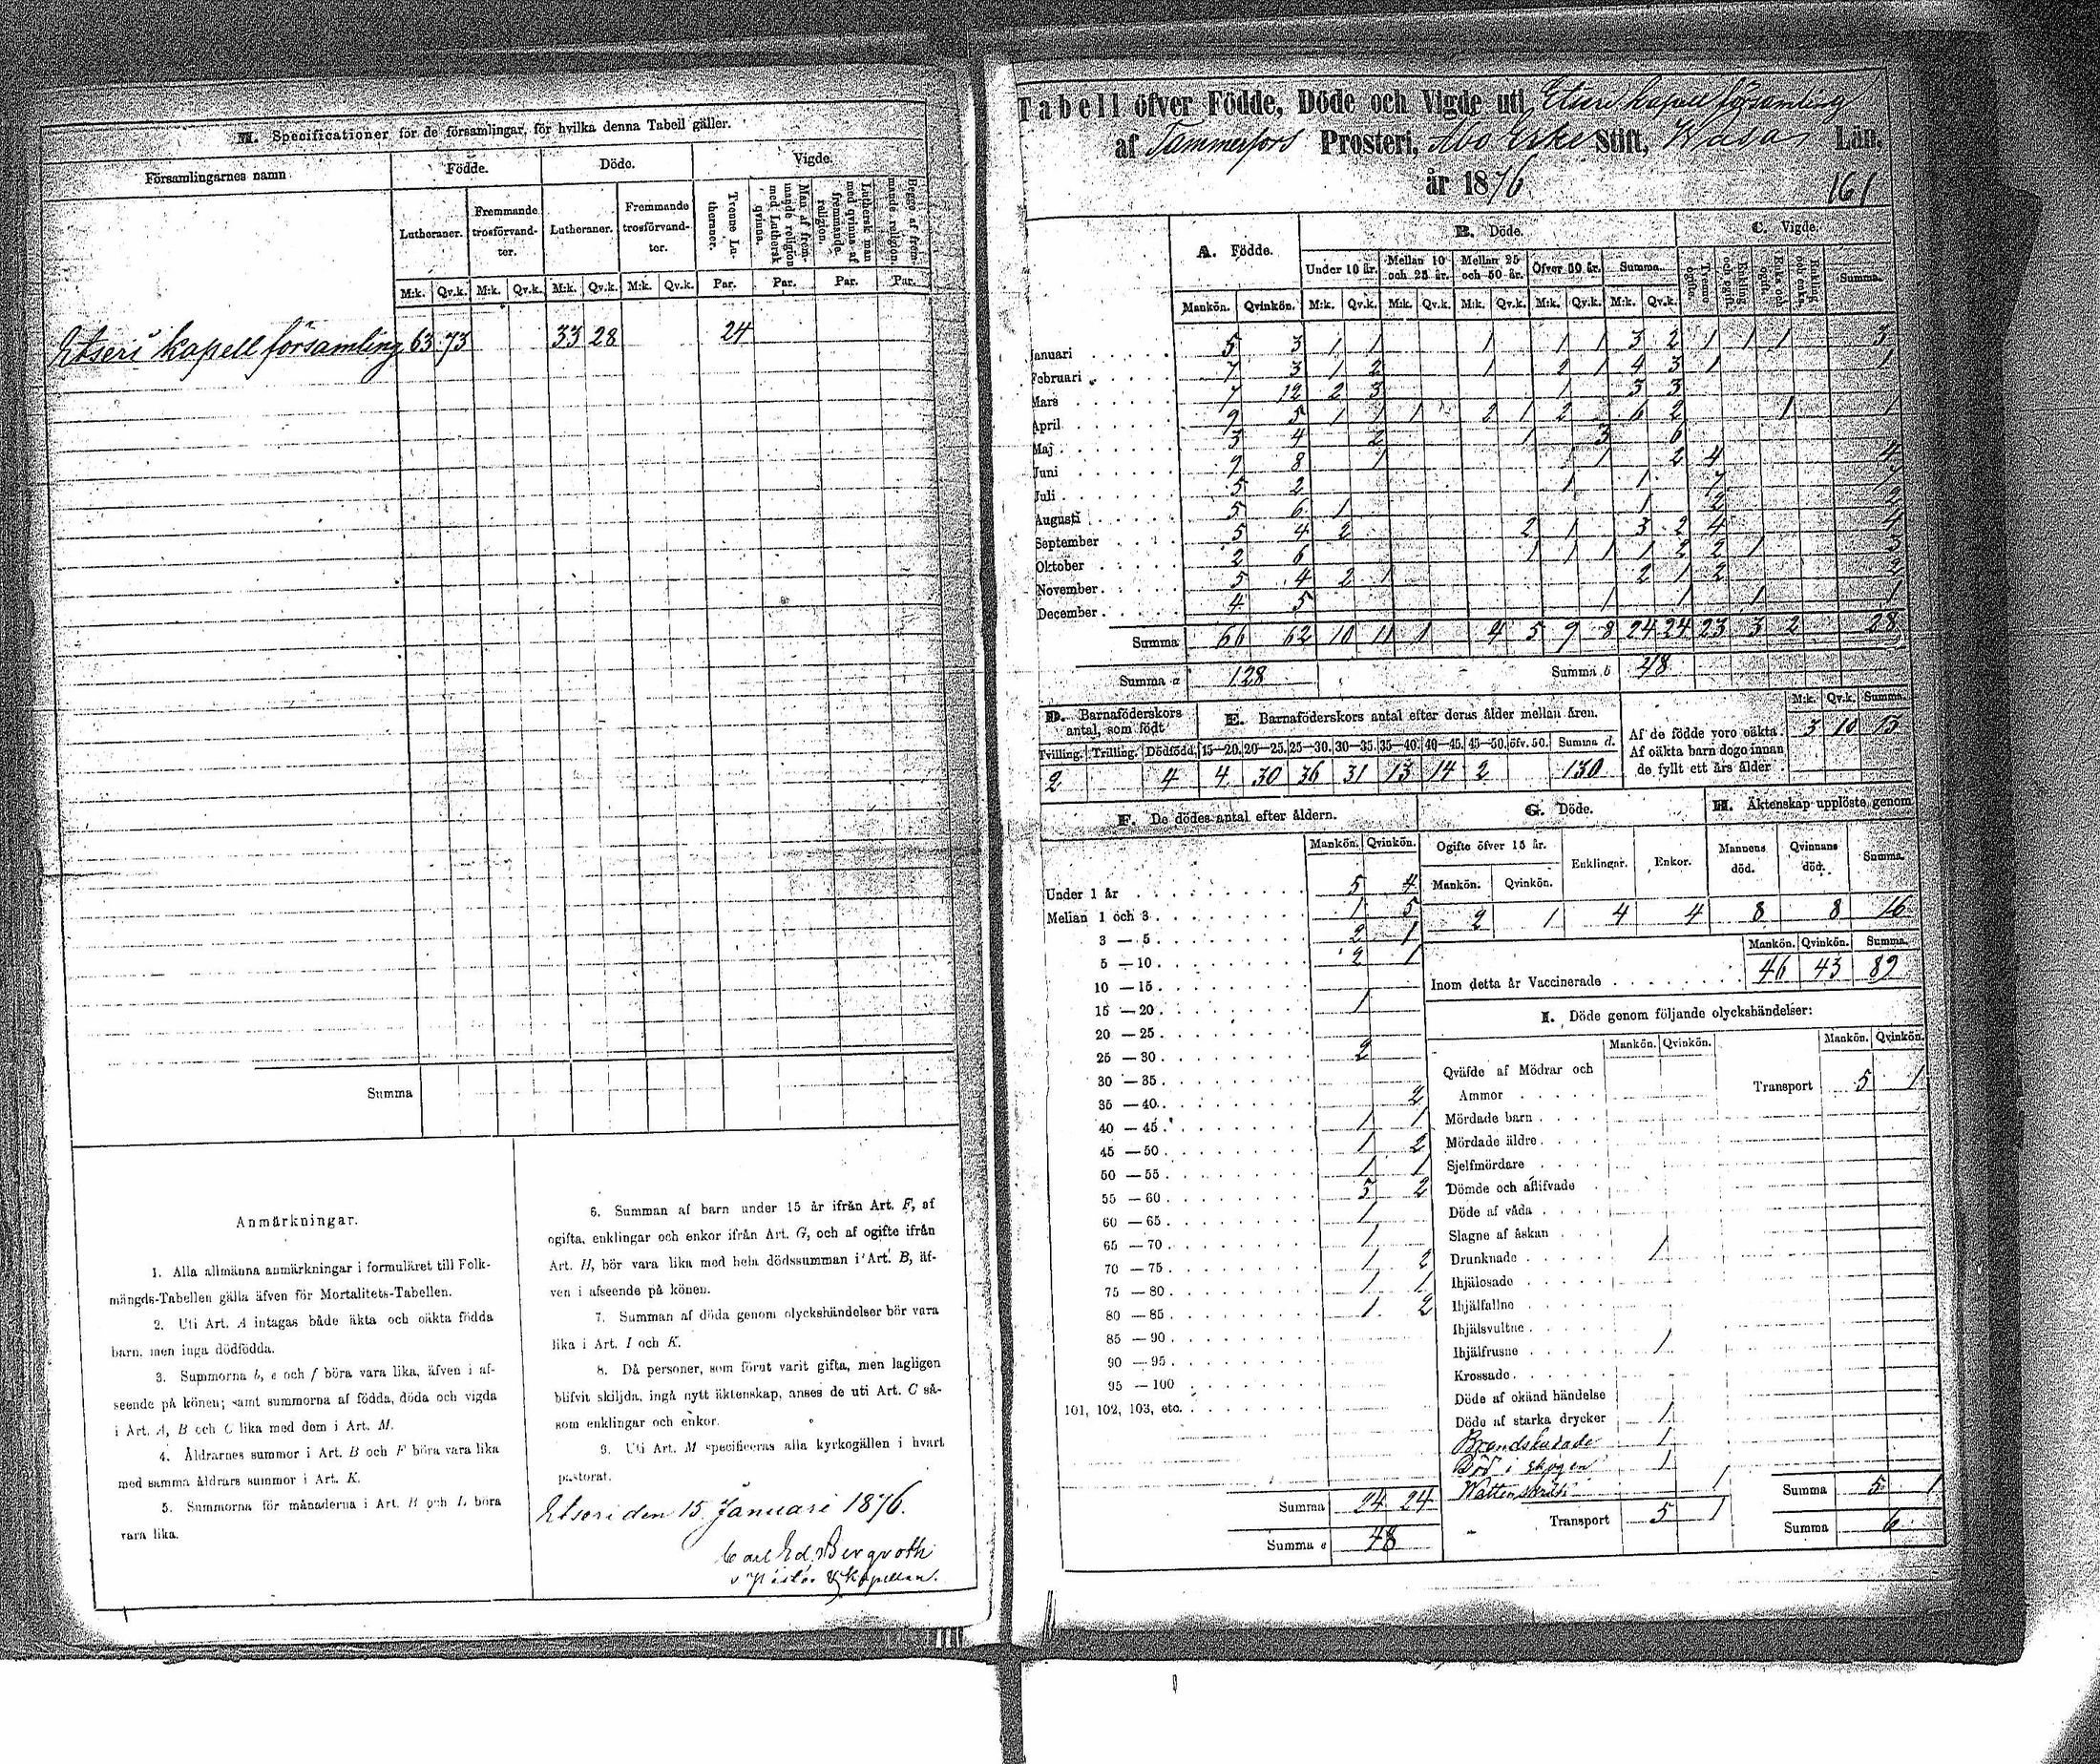 M. Specificationer för de församlingar, för hvilka denna Tabell gäller.
Församlingarnes namn
Födde.
Döde.
Vigde.
Lutheraner.
Fremmande trosförvandter.
Lutheraner.
Fremmande trosförvandter.
Trenne Lutheraner.
Man af fremmande religion med Luthersk qvinna.
Luthersk man med qvinna af fremmande religion.
Begge af fremmande religion.
M:k. Qv.k. M:k. Qv.k. M:k. Qv.k. M:k. Qv.k. Par. Par. Par. Par.
Etseri kapell församling 63 73 33 28 24
Summa
Anmärkningar.
1. Alla allmänna anmärkningar i formuläret till Folk-
mängds-Tabellen gälla äfven för Mortalitets-Tabellen.
2. Uti Art. A intagas både äkta och oäkta födda
barn, men inga dödfödda.
3. Summorna b, e och f böra vara lika, äfven i af-
seende på könen; samt summorna af födda, döda och vigda
i Art. A, B och C lika med dem i Art. M.
4. Åldrarnes summor i Art. B och F böra vara lika
med samma åldrars summor i Art. K.
5. Summorna för månaderna i Art. B och L böra
vara lika.
6. Summan af barn under 15 år ifrån Art. F, af
ogifta, enklingar och enkor ifrån Art. G, och af ogifte ifrån
Art. H, bör vara lika med hela dödssumman i Art. B, äf-
ven i afseende på könen.
7. Summan af döda genom olyckshändelser bör vara
lika i Art. I och K.
8. Då personer, som förut varit gifta, men lagligen
blifvit skiljda, ingå nytt äktenskap, anses de uti Art. C så-
som enklingar och enkor.
9. Uti Art. M specificeras alla kyrkogällen i hvart
pastorat.
Etseri den 15 Januari 1876.
Carl Ed. Bergroth
Kapellan.
Tabell öfver Födde, Döde och Vigde uti Etseri kapell församling
af Tammerfors Prosteri, Åbo Erke Stift, Wasa Län,
år 1876
161
A. Födde.
B. Döde.
C. Vigde.
Under 10 år. Mellan 10 och 25 år. Mellan 25 och 50 år. Öfver 50 år. Summa.
Summa.
Mankön. Qvinkön. M:k. Qv.k. M:k. Qv.k. M:k. Qv.k. M:k. Qv.k. M:k. Qv.k.
Januari 5 3 1 1 1 1 1 3 2 1 1 1 3
Februari 7 3 1 2 1 2 1 4 3 1 1
Mars 7 12 2 3 1 3 3
April 9 5 1 1 1 2 1 2 6 2 1 1
Maj 3 4 2 1 3 6
Juni 9 8 1 1 2 4 4
Juli 5 2 1 1 7 7
Augusti 5 6 1 1 2 2
September 5 4 2 2 1 3 2 4 4
Oktober 2 6 1 1 1 1 2 2 1 3
November 5 4 2 1 2 1 2 2
December 4 5 1 1 1 1
Summa 66 62 10 11 1 4 5 9 8 24 24 23 3 2 28
Summa a 128 Summa b 48
D. Barnaföderskors antal, som födt
E. Barnaföderskors antal efter deras ålder mellan åren.
M:k. Qv.k. Summa.
Tvilling. Trilling. Dödfödd. 15—20. 20—25. 25—30. 30—35. 35—40. 40—45. 45—50. öfv. 50. Summa d.
2 4 4 30 36 31 13 14 2 130
Af de födde voro oäkta 3 10 13
Af oäkta barn dogo innan
de fyllt ett års ålder
F. De dödes antal efter åldern.
Mankön. Qvinkön.
Under 1 år 5 4
Mellan 1 och 3 1 5
3 — 5 2 1
5 — 10 2 1
10 — 15
15 — 20 1
20 — 25
25 — 30 2
30 — 35
35 — 40 2
40 — 45 1 1
45 — 50 1 2
50 — 55 1 1
55 — 60 3 2
60 — 65 1
65 — 70 1
70 — 75 1 2
75 — 80 1 1
80 — 85 1 2
85 — 90
90 — 95
95 — 100
101, 102, 103, etc.
Summa 24 24
Summa e 48
G. Döde.
Ogifte öfver 15 år.
Mankön. Qvinkön. Enklingar. Enkor.
2 1 4 4
H. Äktenskap upplöste genom
Mannens död. Qvinnans död. Summa.
8 8 16
Mankön. Qvinkön. Summa.
Inom detta år Vaccinerade 46 43 89
I. Döde genom följande olyckshändelser:
Mankön. Qvinkön. Mankön. Qvinkön.
Qväfde af Mödrar och
Ammor
Transport 5 1
Mördade barn
Mördade äldre
Sjelfmördare
Dömde och aflifvade
Döde af våda
Slagne af åskan
Drunknade 1
Ihjälosade
Ihjälfallne
Ihjälsvultne
Ihjälfrusne 1
Krossade
Döde af okänd händelse
Döde af starka drycker 1
Brandskadade 1
Död i skogen 1
1
Transport 5 1
Summa 5 1
Summa 6